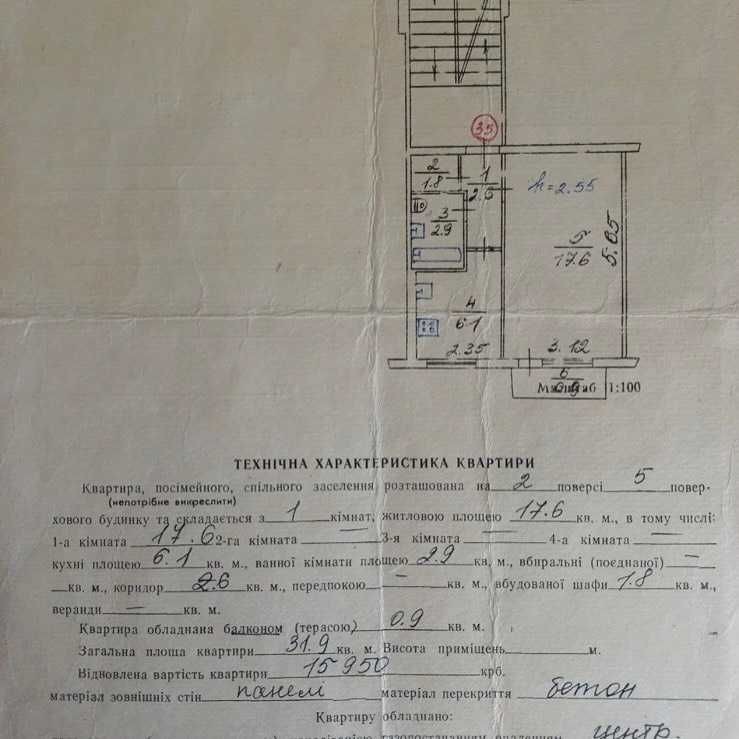 35
2
1.8
1
2.6
h=2.55
3
2.9
5
17.6
5.65
4
6.1
2.35
3.12
6
0.9
Масштаб 1:100
ТЕХНІЧНА ХАРАКТЕРИСТИКА КВАРТИРИ
Квартира, посімейного, спільного заселення розташована на 2 поверсі 5 повер-
(непотрібне викреслити)
хового будинку та складається з 1 кімнат, житловою площею 17.6 кв. м., в тому числі:
1-а кімната 17.6 2-га кімната — 3-я кімната — 4-а кімната —
кухні площею 6.1 кв. м., ванної кімнати площею 2.9 кв. м., вбиральні (поєднаної) —
кв. м., коридор 2.6 кв. м., передпокою — кв. м., вбудованої шафи 1.8 кв. м.,
веранди — кв. м.
Квартира обладнана балконом (терасою) 0.9 кв. м.
Загальна площа квартири 31.9 кв. м. Висота приміщень м.
Відновлена вартість квартири 15950 крб.
матеріал зовнішніх стін панелі матеріал перекриття бетон
Квартиру обладнано:
центр.